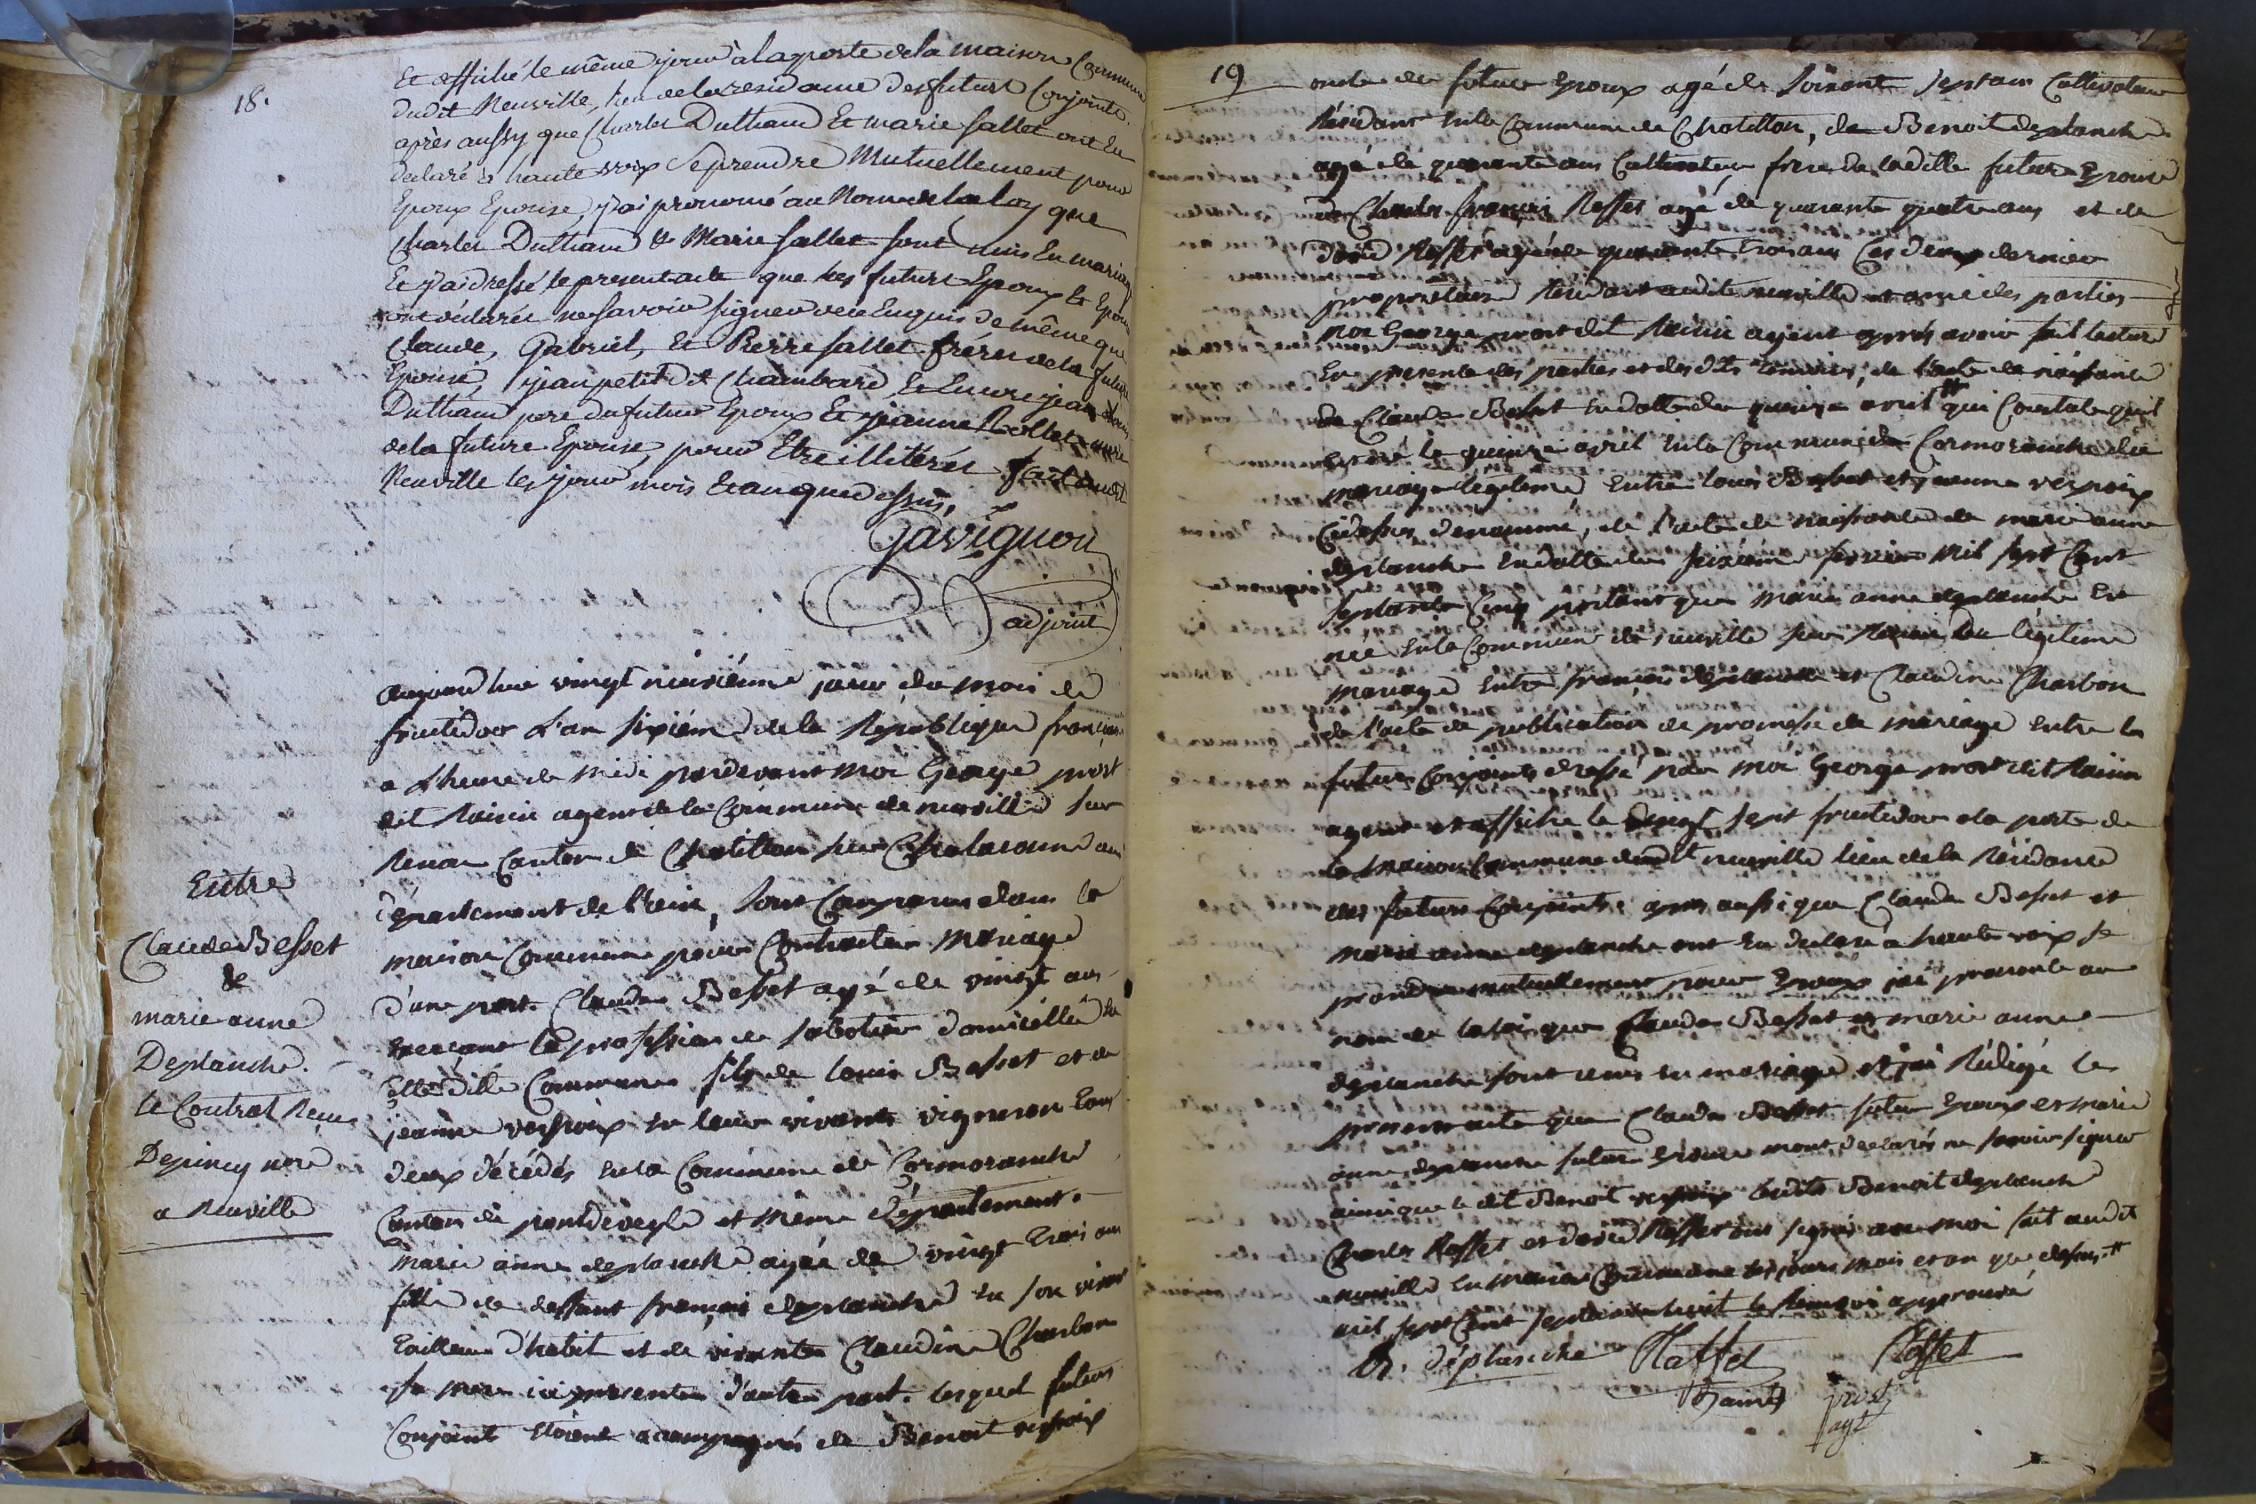 18.
Et affiché le même jour à la porte de la maison Commune
dudit Neuville, lieu de la residance des futurs Conjoints.
après aussy que Charles Duthaud Et marie fallet ont Eu
declaré à haute voix se prendre Mutuellement pour
Epoux Epouse, j'ai prononcé au Nom de la loy que
Charles Duthaud & Marie fallet sont unis En mariage
Et j'ai dressé le present acte que les futurs Epoux Et Epouse
ont déclarés ne savoir signer de ce Enquis de même que
Claude, Gabriel, Et Pierre fallet frères de la future
Epouse, jean petit dit Chambard Et Encore jean
Duthaud pere du futur Epoux Et jeanne Rollet mere
de la future Epouse pour Etre illitérés fait audit
Neuville les jour mois Et an que dessus,
Gavignon
adjoint
aujourd'hui vingt neuviéme jour du mois de
fructidor L'an sixiéme de la République française
a L'heure de midi pardevant moi George prost
dit Rainin agent de la Commune de neuville sur
Renon Canton de Chatillon sur Chalaronne au
département de l'ain, sont Comparus dans la
maison Commune pour Contracter mariage
d'une part Claude Besset agé de vingt ans
Exercant la profession de sabotier domicillié En
Cette ditte Commune fils de louis Besset et de
jeanne vespoix en leur vivants vigneron tous
deux décédés En la Commune de Cormoranche
Canton de pontdevegle et même département.
marie anne deplanche agée de vingt trois ans
fille de deffunt françois deplanche En son vivant
tailleur d'habit et de vivante Claudine Charbon
sa mere ici presente d'autre part. lesquel futurs
Conjoint Etoient accompagnés de Benoit vespoix
Entre
Claude Besset
&
marie anne
Deplanche.
le Contrat Reçu
Depincy nore
a Neuville
19
oncle du futur Epoux agé de soixante sept ans Cultivateur
Résidant En la Commune de Chatillon, de Benoit deplanche
agé de quarante ans Cultivateur frere de laditte future Epouse
de Charles françois Roffet agé de quarante quatre ans et de
david Roffet agé de quarante trois ans Ces deux dernier
propriétaire Residant audit neuville et amie des parties
moi George prost dit Rainin agent aprrés avoir fait lecture
En presente des parties et des dits temoins, de l'acte de naissance
de Claude Besset En datte du quinze avril # qui Constate qu'il
Est né le quinze avril En la Commune de Cormoranche du
mariage légitime Entre louis Besset et jeanne vespoix
Cidessus denommé, de l'acte de naissance de marie anne
deplanche En datte du seiziéme fevrier mil sept Cent
septante Cinq portant que marie anne deplanche Est
née En la Commune de neuville sur Renon du légitime
mariage Entre françois deplanche et Claudine Charbon
de l'acte de publication de promesse de mariage Entre les
futurs Conjoints dressé par moi George prost dit Rainin
agent et affiché le sept fructidor a la porte de
la maison Commune dudit neuville lieu de la Résidance
des futurs Conjoints. apres aussi que Claude Besset et
marie anne deplanche ont Eu declaré a haute voix se
prendre mutuellement pour Epoux jai prononcé au
nom de la loi que Claude Besset et marie anne
deplanche sont unis en mariage et jai Rédigé le
present acte que Claude Besset futur Epoux et marie
anne deplanche future Epouse mont declarés ne savoir signer
ainsi que le dit Benoit vespoix ledits Benoit deplanche
Charles Roffet et david Roffet ont signé avec moi fait audit
neuville En maison Commune les jours mois et an que dessus. #
mil sept Cent septante huit le Renvoi approuvé
B. déplanche Roffet Roffet
Rainin prost
agt